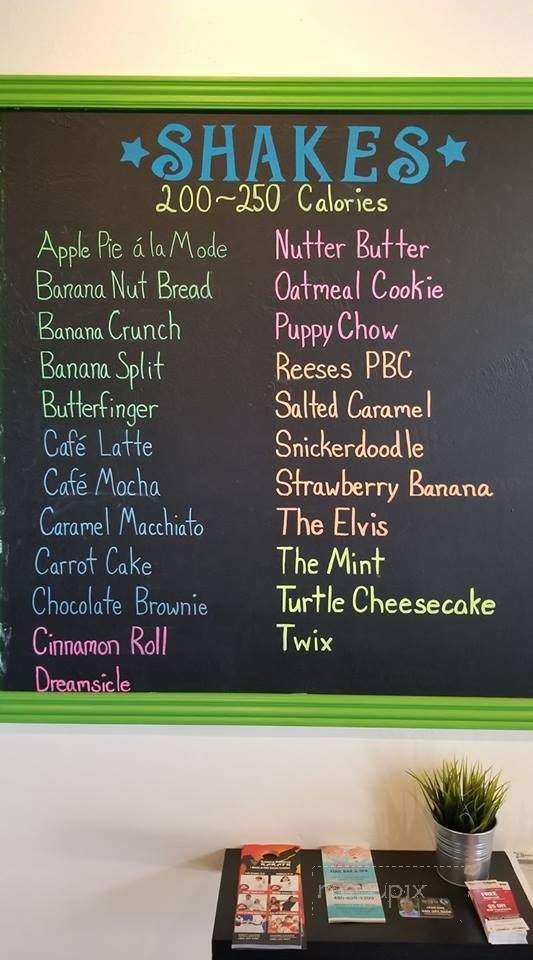 SHAKES
200~250 Calories
Apple Pie á la Mode
Banana Nut Bread
Banana Crunch
Banana Split
Butterfinger
Café Latte
Café Mocha
Caramel Macchiato
Carrot Cake
Chocolate Brownie
Cinnamon Roll
Dreamsicle
Nutter Butter
Oatmeal Cookie
Puppy Chow
Reeses PBC
Salted Caramel
Snickerdoodle
Strawberry Banana
The Elvis
The Mint
Turtle Cheesecake
Twix
FREE
$5 Off